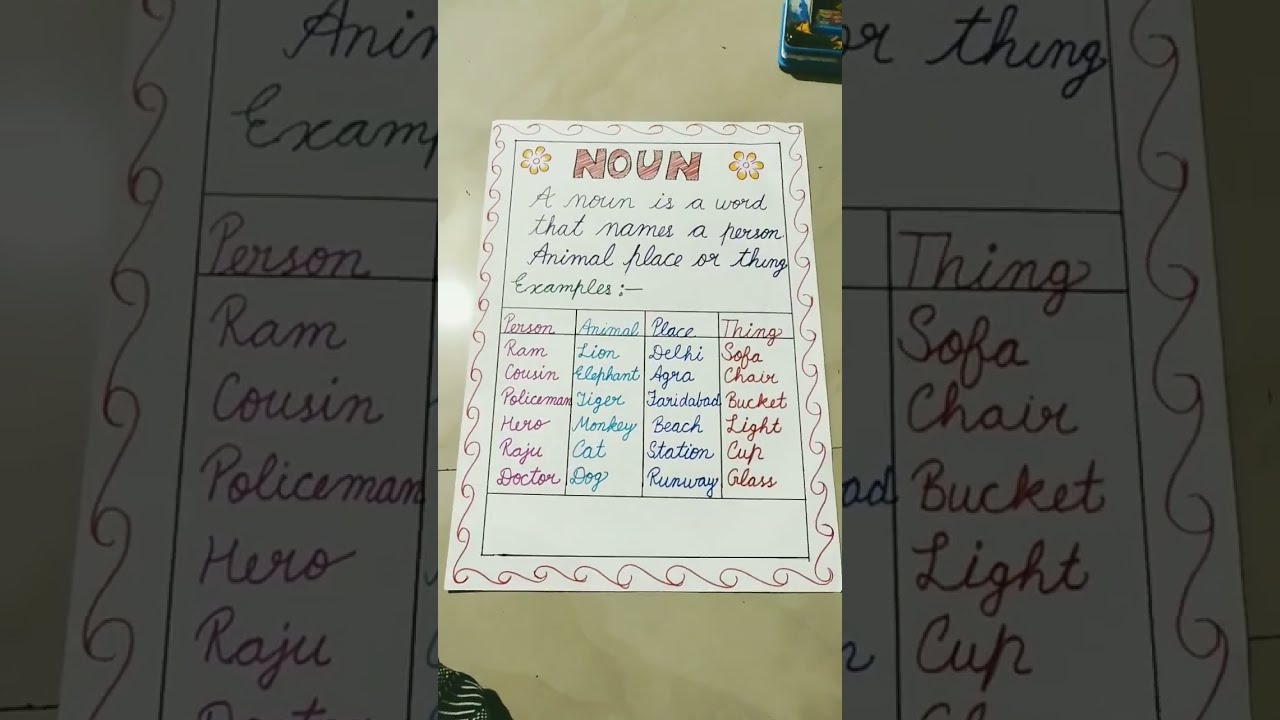 NOUN
A noun is a word
that names a person
Animal place or thing
Examples :-
Person Animal Place Thing
Ram Lion Delhi Sofa
Cousin Elephant Agra Chair
Policeman Tiger Faridabad Bucket
Hero Monkey Beach Light
Raju Cat Station Cup
Doctor Dog Runway Glass